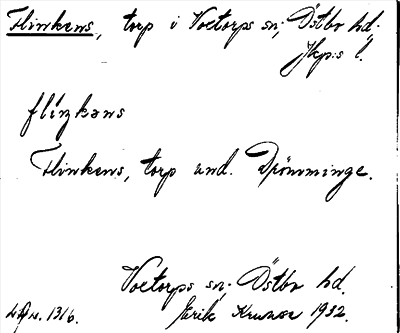 Flinkens, torp i Voxtorps sn; Östbo hd.
Jkp:s l.
flíŋkəns
Flinkens, torp und. Drömminge.
Voxtorps sn; Östbo hd.
Erik 1932.
1316.